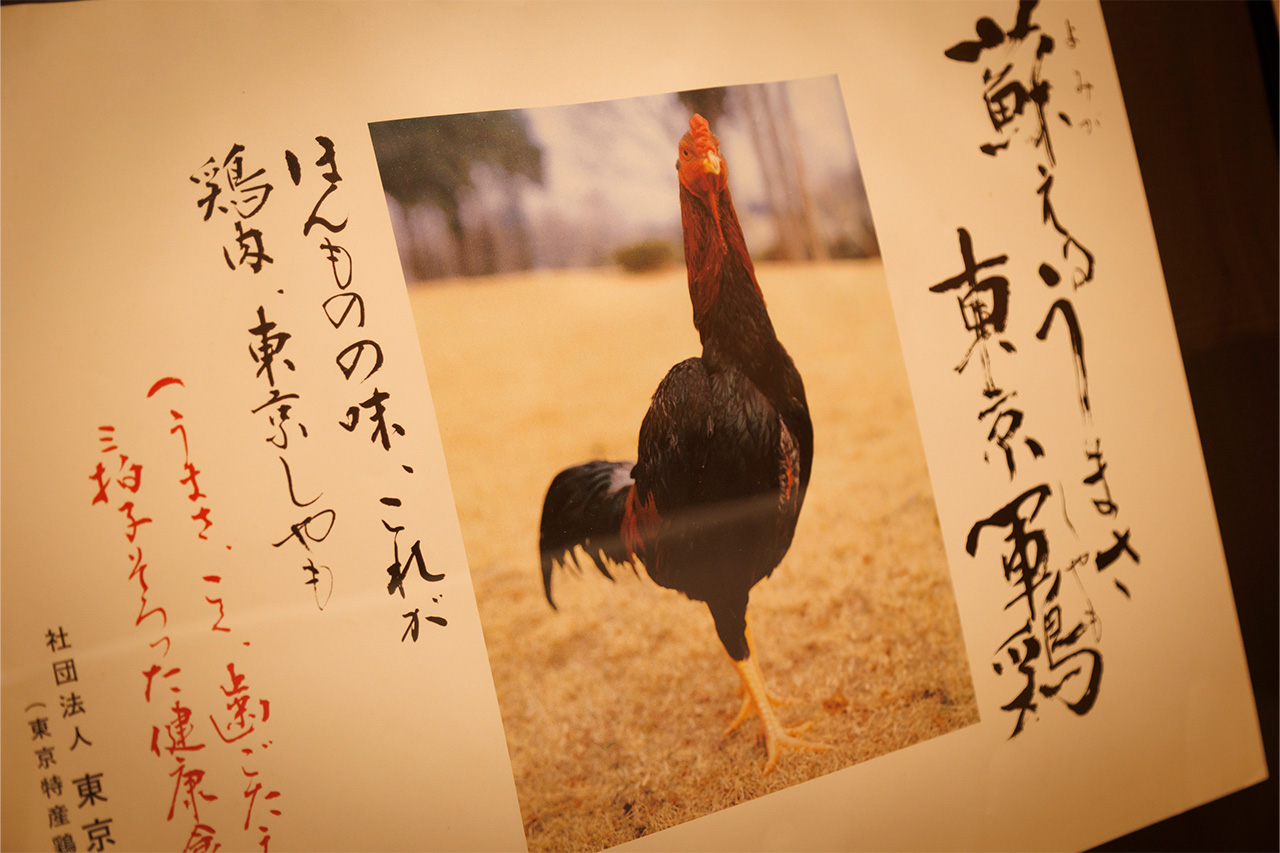 よみが
蘇えるうまさ
しやも
東京軍鶏
ほんものの味、これが
鶏肉、東京しやも
(うまさ、こく、歯ごたえ
三拍子そろった健康食
社団法人 東京
(東京特産鶏